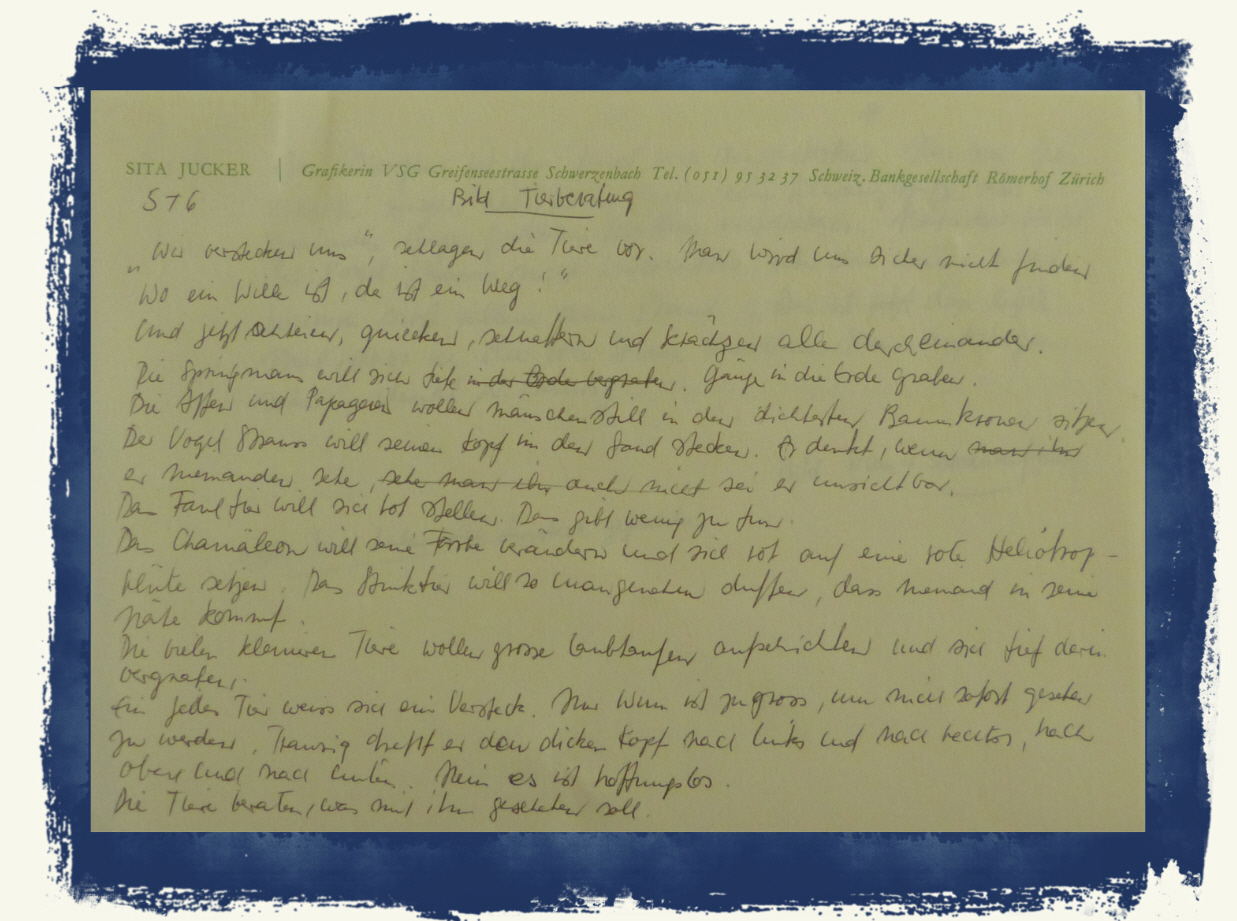 SITA JUCKER | Grafikerin VSG Greifenseestrasse Schwerzenbach Tel. (051) 95 32 37 Schweiz. Bankgesellschaft Römerhof Zürich
S T 6 Bild Tierberatung
„Wir verstecken uns“, schlagen die Tiere vor. Man wird uns sicher nicht finden
„Wo ein Wille ist, da ist ein Weg!“
Und jetzt schreien, quieken, schnattern und krächzen alle durcheinander.
Die Springmaus will sich tiefe in der Erde vergraben. Gänge in die Erde graben.
Die Affen und Papageien wollen mäuschenstill in den dichtesten Baumkronen sitzen.
Der Vogel Strauss will seinen Kopf in den Sand stecken. Er denkt, wenn man ihn
er niemanden sehe, sehe man ihn auch nicht sei er unsichtbar.
Das Faultier will sich tot stellen. Das gibt wenig zu tun.
Das Chamäleon will seine Farbe verändern und sich rot auf eine rote Heliotrop-
blüte setzen. Das Stinktier will so unangenehm duften, dass niemand in seine
Nähe kommt.
Die vielen kleineren Tiere wollen grosse Laubhaufen aufschichten und sich tief darin
vergraben.
Ein jedes Tier weiss sich ein Versteck. Nur ist zu gross, um nicht sofort gesehen
zu werden. Traurig dreht er den dicken Kopf nach links und nach rechts, nach
oben und nach unten. Nein es ist hoffnungslos.
Die Tiere beraten, was mit ihm geschehen soll.